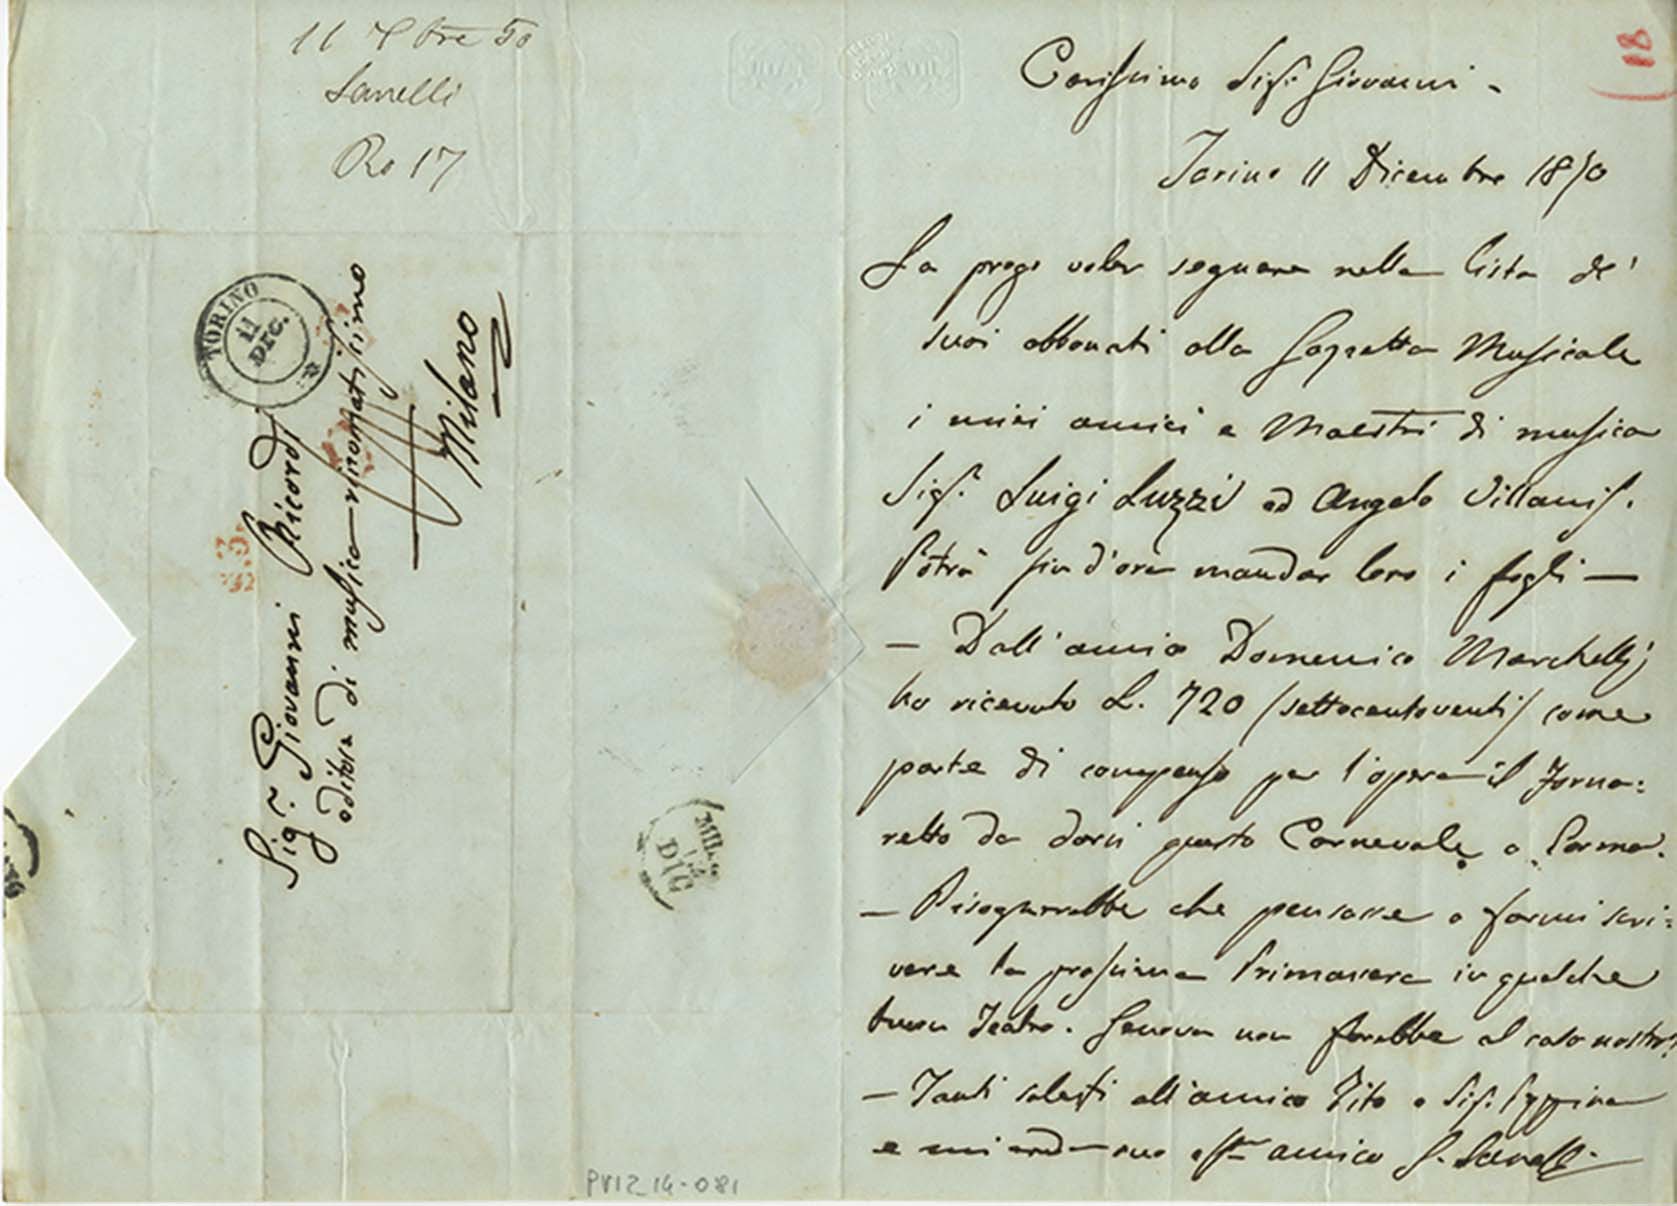 11 Xbre 50
Sanelli
Ro 17
TORINO
11
DIC.
Sig.r Giovanni Ricordi
editore di musica rinomatissimo
Milano
MIL
DIC
PV12_14-081
18
Carissimo Sig.r Giovanni -
Torino 11 Dicembre 1850
La prego voler segnare nella lista de'
suoi abbonati alla Gazzetta Musicale
i miei amici e Maestri di musica
Sig.i Luigi Luzzi ed Angelo Villanis.
Potrà fin d'ora mandar loro i fogli —
— Dall'amico Domenico Marchelli
ho ricevuto L. 720 (settecentoventi) come
parte di compenso per l'opera il Forna:
retto da darsi questo Carnevale a Parma.
— Bisognerebbe che pensasse a farmi scri:
vere la prossima Primavera in qualche
buon Teatro. Genova non farebbe al caso nostro?
— Tanti saluti all'amico Tito e Sig.
e mi creda suo amico G. Sanelli